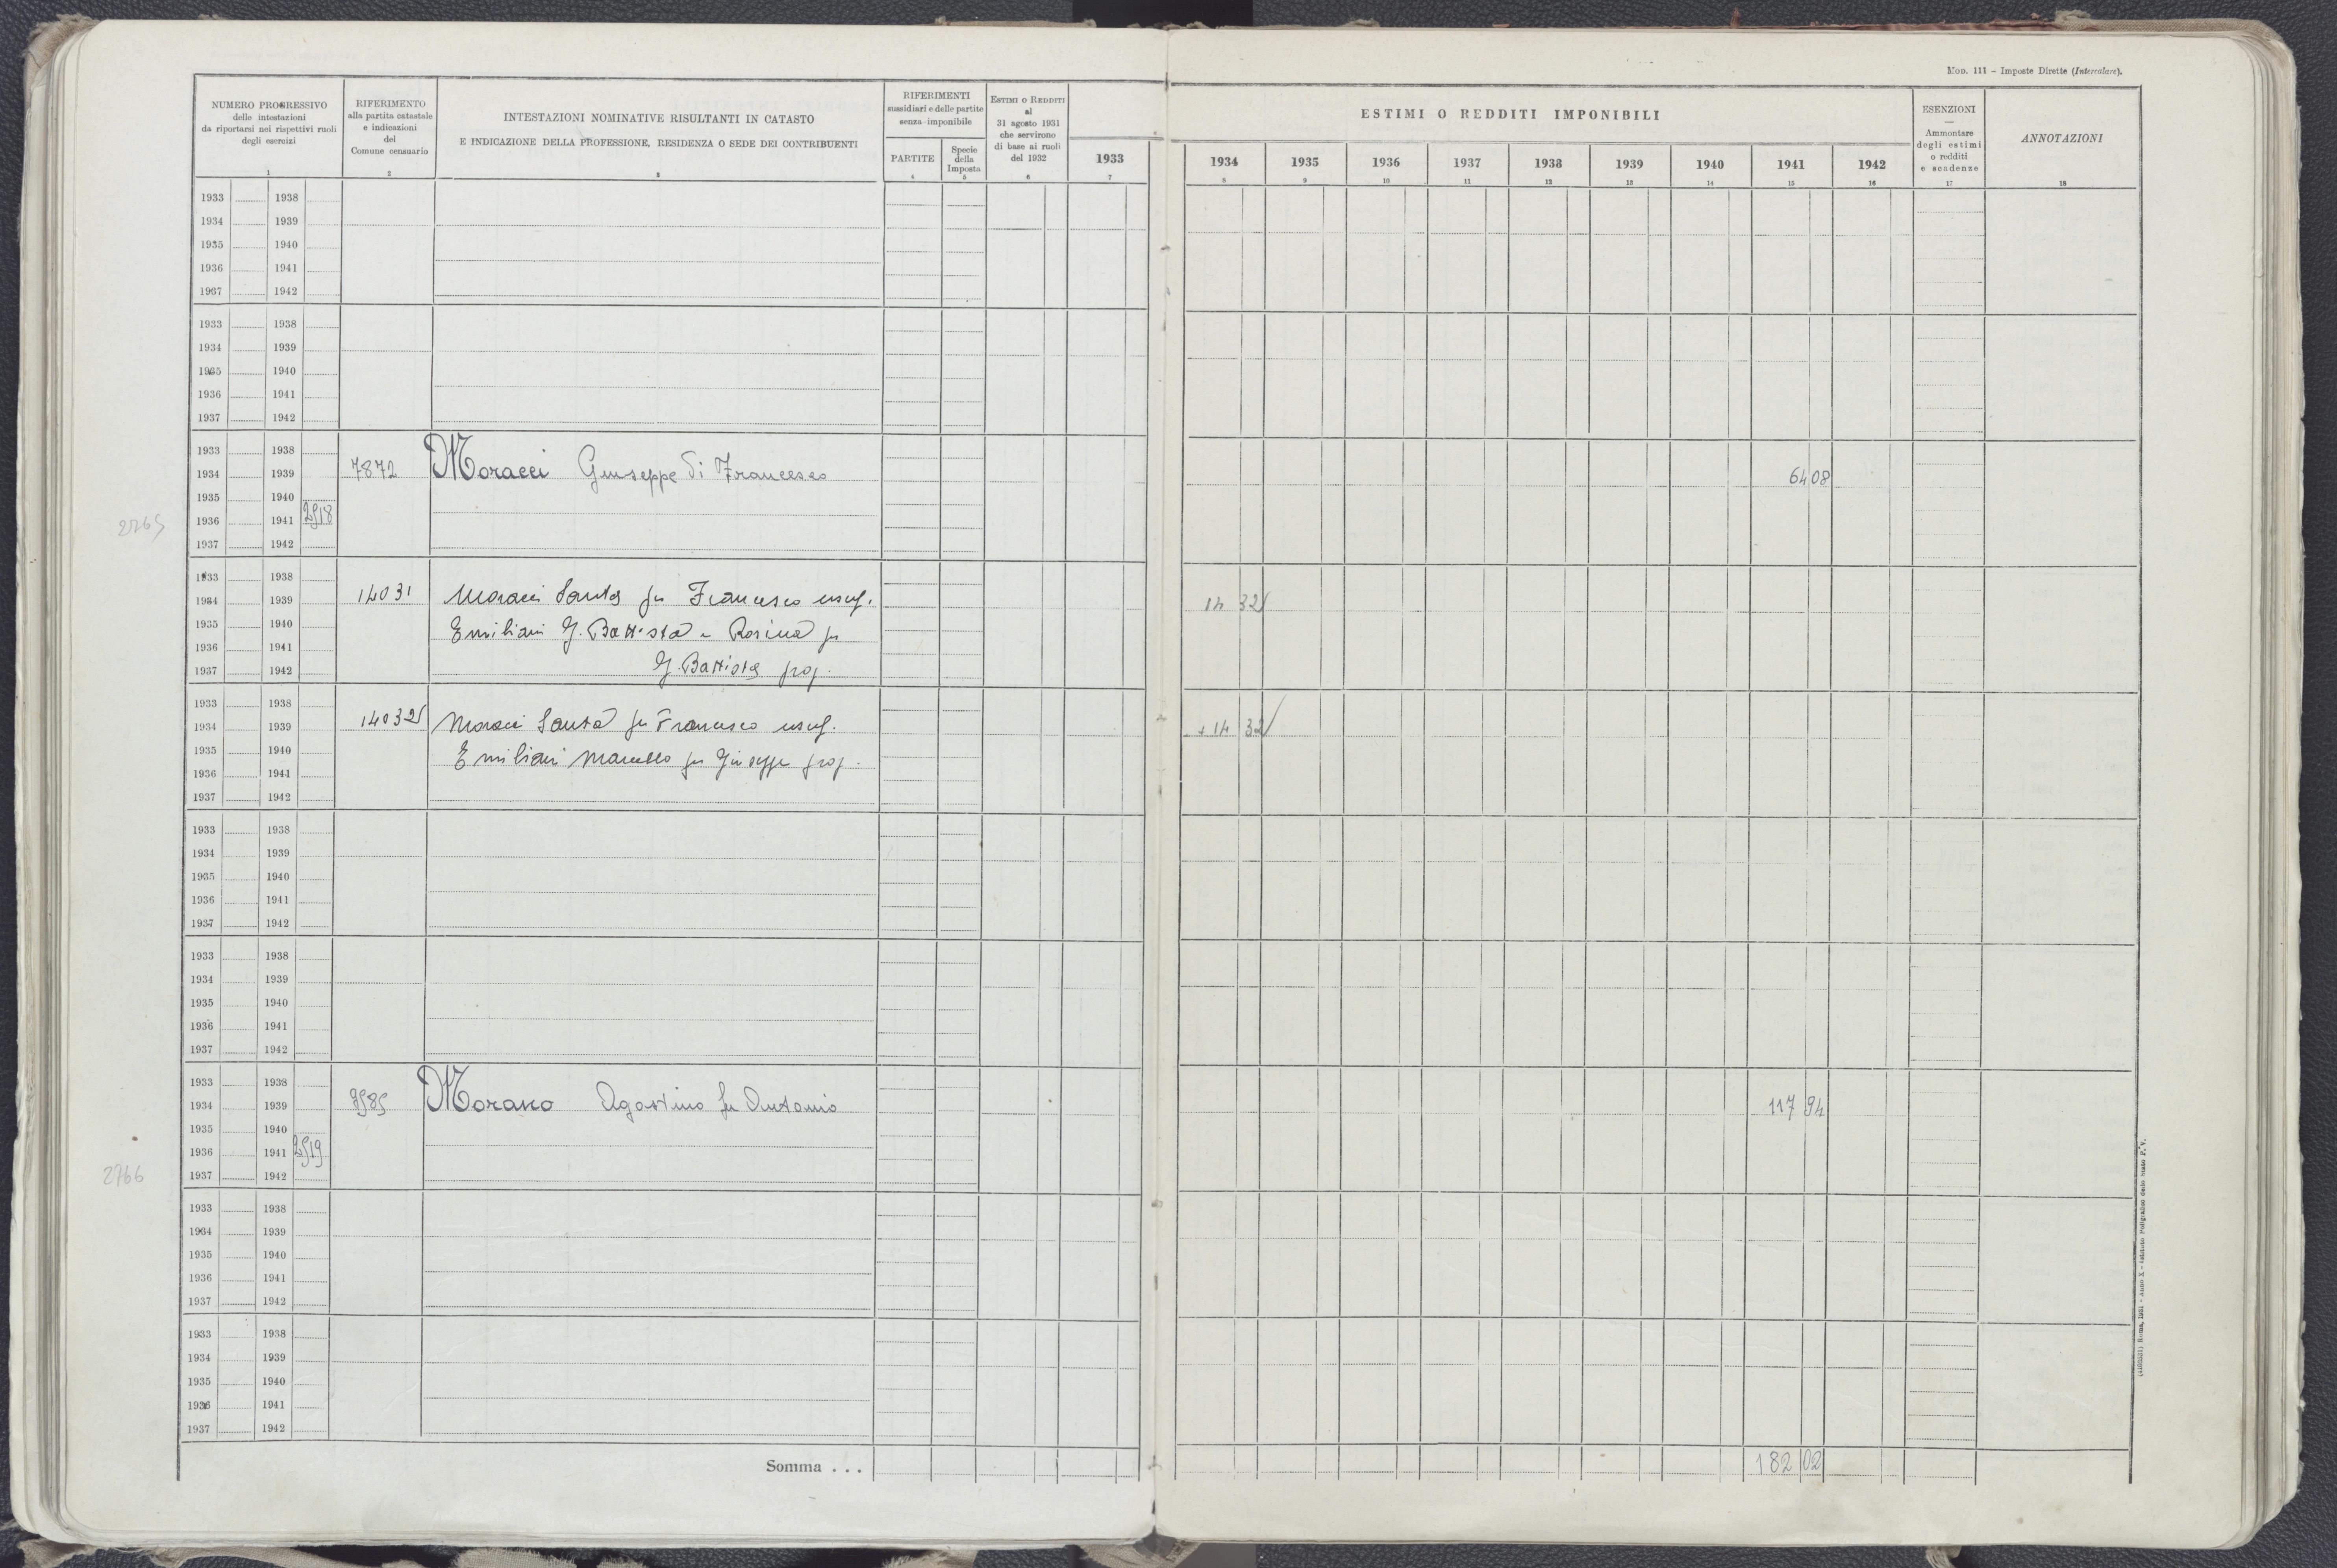 MOD. 111 – Imposte Dirette (Intercalare).
NUMERO PROGRESSIVO
delle intestazioni
da riportarsi nei rispettivi ruoli
degli esercizi
1
RIFERIMENTO
alla partita catastale
e indicazioni
del
Comune censuario
2
INTESTAZIONI NOMINATIVE RISULTANTI IN CATASTO
E INDICAZIONE DELLA PROFESSIONE, RESIDENZA O SEDE DEI CONTRIBUENTI
3
RIFERIMENTI
sussidiari e delle partite
senza imponibile
PARTITE
4
Specie
della
Imposta
5
ESTIMI O REDDITI
al
31 agosto 1931
che servirono
di base ai ruoli
del 1932
6
1933
7
ESTIMI O REDDITI IMPONIBILI
1934 1935 1936 1937 1938 1939 1940 1941 1942
8 9 10 11 12 13 14 15 16
ESENZIONI
—
Ammontare
degli estimi
o redditi
e scadenze
17
ANNOTAZIONI
18
1933 1938
1934 1939
1935 1940
1936 1941
1937 1942
1933 1938
1934 1939
1935 1940
1936 1941
1937 1942
1933 1938
1934 1939 7872 Moracci Giuseppe di Francesco 64 08
1935 1940
1936 1941 2518
2765
1937 1942
1933 1938
1934 1939 14031 Moracci Santa fu Francesco usuf. 14 32
1935 1940 Emiliani G. Battista e Rosina fu
1936 1941
1937 1942 G. Battista prop.
1933 1938
1934 1939 14032 Moracci Santa fu Francesco usuf. + 14 32
1935 1940 Emiliani Marcello fu Giuseppe prop.
1936 1941
1937 1942
1933 1938
1934 1939
1935 1940
1936 1941
1937 1942
1933 1938
1934 1939
1935 1940
1936 1941
1937 1942
1933 1938
1934 1939 9585 Morano Agostino fu Antonio 117 94
1935 1940
1936 1941 2519
2766
1937 1942
1933 1938
1934 1939
1935 1940
1936 1941
1937 1942
1933 1938
1934 1939
1935 1940
1936 1941
1937 1942
Somma . . . 182 02